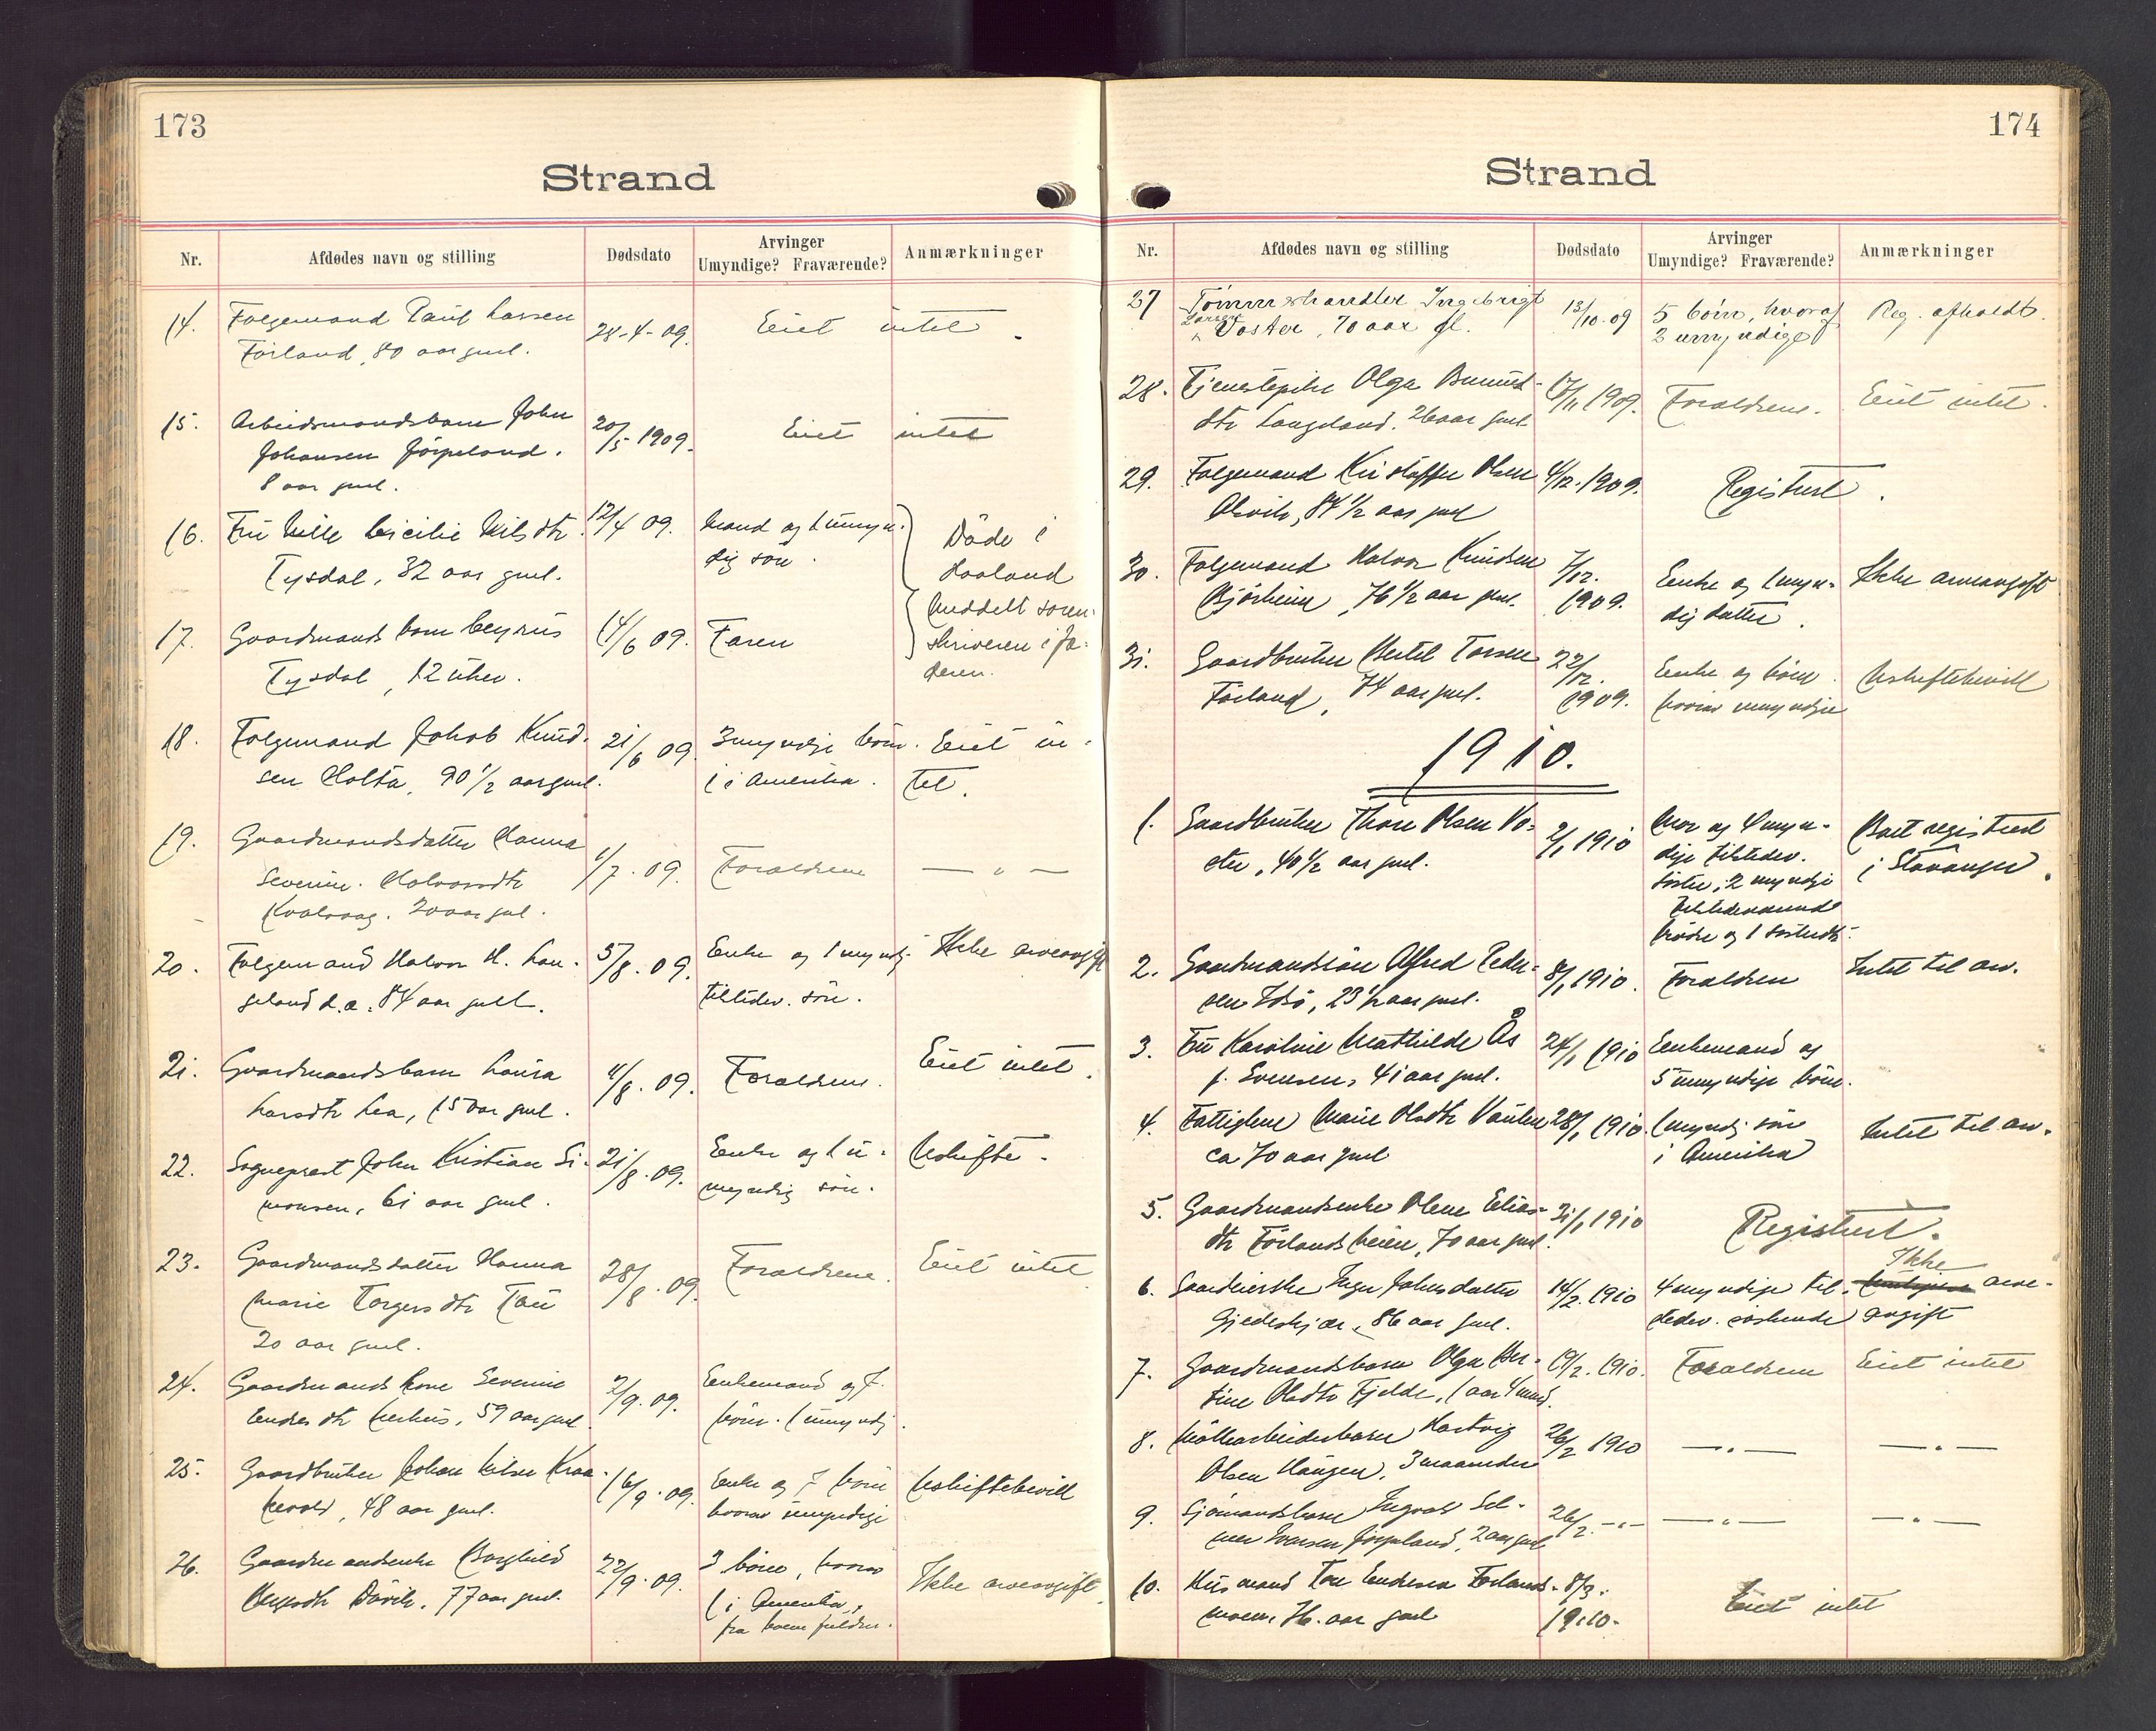 173
Strand
Nr.
Afdødes navn og stilling
Dødsdato
Arvinger
Umyndige? Fraværende?
Anmærkninger
14.
Folgemand Paul Larsen
Förland, 80 aar guml.
28-4-09.
Eiet intet.
15.
Arbeidsmandsbarn John
Johansen Jörpeland.
8 aar guml.
20/5 1909.
Eiet intet
16.
Fru Nille Cicilie Nilsdtr.
Tysdal, 32 aar guml.
12/4 09.
Mand og 1 umyn-
dig sön.
Döde i
Haaland
17.
Gaardmands barn
Tysdal, 12 uker.
14/6 09.
Faren
Meddelt soren-
skriveren i Jæ-
deren.
18.
Folgemand Jakob Knud-
sen Holta, 90 1/2 aar guml.
21/6 09
3 myndige börn.
1 i Amerika.
Eiet in-
tet.
19.
Gaardmandsdatter Hanna
Severine Halvorsdtr
Kvalvaag. 20 aar gul.
1/7. 09.
Foraldrene
— " —
20.
Folgemand Halvor H. Lan-
geland d.æ. 84 aar gull.
5/8. 09.
Enke og 1 myndg.
tilstedev. sön.
Ikke arveavgift
21.
Gaardmandsbarn Laura
Larsdtr Lea, 15 aar guml.
4/8. 09.
Foraldrene.
Eiet intet.
22.
Sogneprest John Kristian Si-
monsen, 61 aar guml.
21/8. 09.
Enke og 1 u-
myndig sön.
Uskifte.
23.
Gaardmandsdatter Hanna
Marie Torgersdtr Tau
20 aar guml.
28/8. 09.
Foraldrene.
Eiet intet
24.
Gaardmandskone Severine
Endresdtr Nerhus, 59 aar guml
2/9. 09.
Enkemand og 7
börn. 1 umyndg.
25.
Gaardbruker Johan Nilsen Kraa-
hevold, 48 aar guml.
16/9. 09.
Enke og 7 börn
hvorav umyndige
Uskiftebevill
26.
Gaardmandsenke Borghild
Dövik. 77 aar guml.
22/9. 09.
3 börn, hvorav
1 i Amerika,
fra
Ikke arveavgift.
174
Strand
Nr.
Afdødes navn og stilling
Dødsdato
Arvinger
Umyndige? Fraværende?
Anmærkninger
27
Tömmerhandler Ingebrigt
Larsen
Voster, 70 aar gl.
13/10. 09
5 börn, hvoraf
2 umyndige
Reg. afholdt.
28.
Tjenestepike Olga
dtr Langeland. 26 aar guml
17/11 1909.
Foraldrene.
Eiet intet.
29.
Folgemand Kristoffer Olsen
84 1/2 aar guml
4/12. 1909.
Registrert.
30.
Folgemand Halvor Knudsen
Björheim, 76 1/2 aar guml.
7/12.
1909.
Enke og 1 myn-
dig datter.
Ikke arveavgift
31.
Gaardbruker Bertel Torsen
Förland, 74 aar guml.
22/12.
1909.
Enke og börn.
hvorav umyndige
Uskiftebevill
1910.
1.
Gaardbruker Thore Olsen Vo-
ster, 40 1/2 aar guml.
2/1 1910
Mor og 4 myn-
dige tilstedev.
söstre, 2 myndige
tilstedevaerende
brödre og 1 sösterdtr.
Boet registrert
i Stavanger.
2.
Gaardmandssön Alfred Peder-
sen Idsö, 23 1/2 aar guml.
8/1 1910.
Foraldrene
Intet til arv.
3.
Fru Karoline Mathilde Ås
f. Svensen, 41 aar guml.
24/1 1910
Enkemand og
5 umyndige börn.
4.
Fattiglem Marie Olsdtr Vaulen
ca 70 aar guml
28/1 1910.
1 myndg. sön
i Amerika
Intet til arv.
5.
Gaardmandsenke Olene Elias-
dtr Förlandsheien, 70 aar guml.
31/1 1910
Registrert.
6.
Gaardeierske Inger Johnsdatter
Gjedeskjær, 86 aar guml.
14/2. 1910
4 myndige til-
stedev. söskende
Ikke
arve-
avgift
7.
Gaardmandsbarn Olga Ber-
tine Olsdtr Fjelde, 1 aar 4 mnd.
19/2. 1910.
Foraldrene
Eiet intet
8.
Mölkearbeiderbarn Hartvig
Olsen Haugen, 3 maaneder
26/2 1910
— " —
— " —
9.
Sjömandsbarn Ingvald Sel-
mer Iversen Jörpeland, 2 aar guml
26/2. — " —
— " —
— " —
10.
Husmand Tore Endresen Förlands-
moen, 76. aar guml
8/3.
1910.
Eiet intet